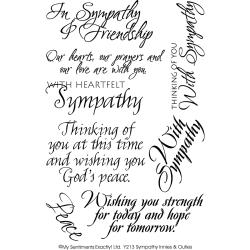 In Sympathy
& Friendship
Our hearts, our prayers and
our love are with you
WITH HEARTFELT
Sympathy
THINKING OF YOU
With Sympathy
Thinking of
you at this time
and wishing you
God's peace.
With
Sympathy
Peace
Wishing you strength
for today and hope
for tomorrow.
©My Sentiments Exactly! Ltd. Y213 Sympathy Innies & Outies